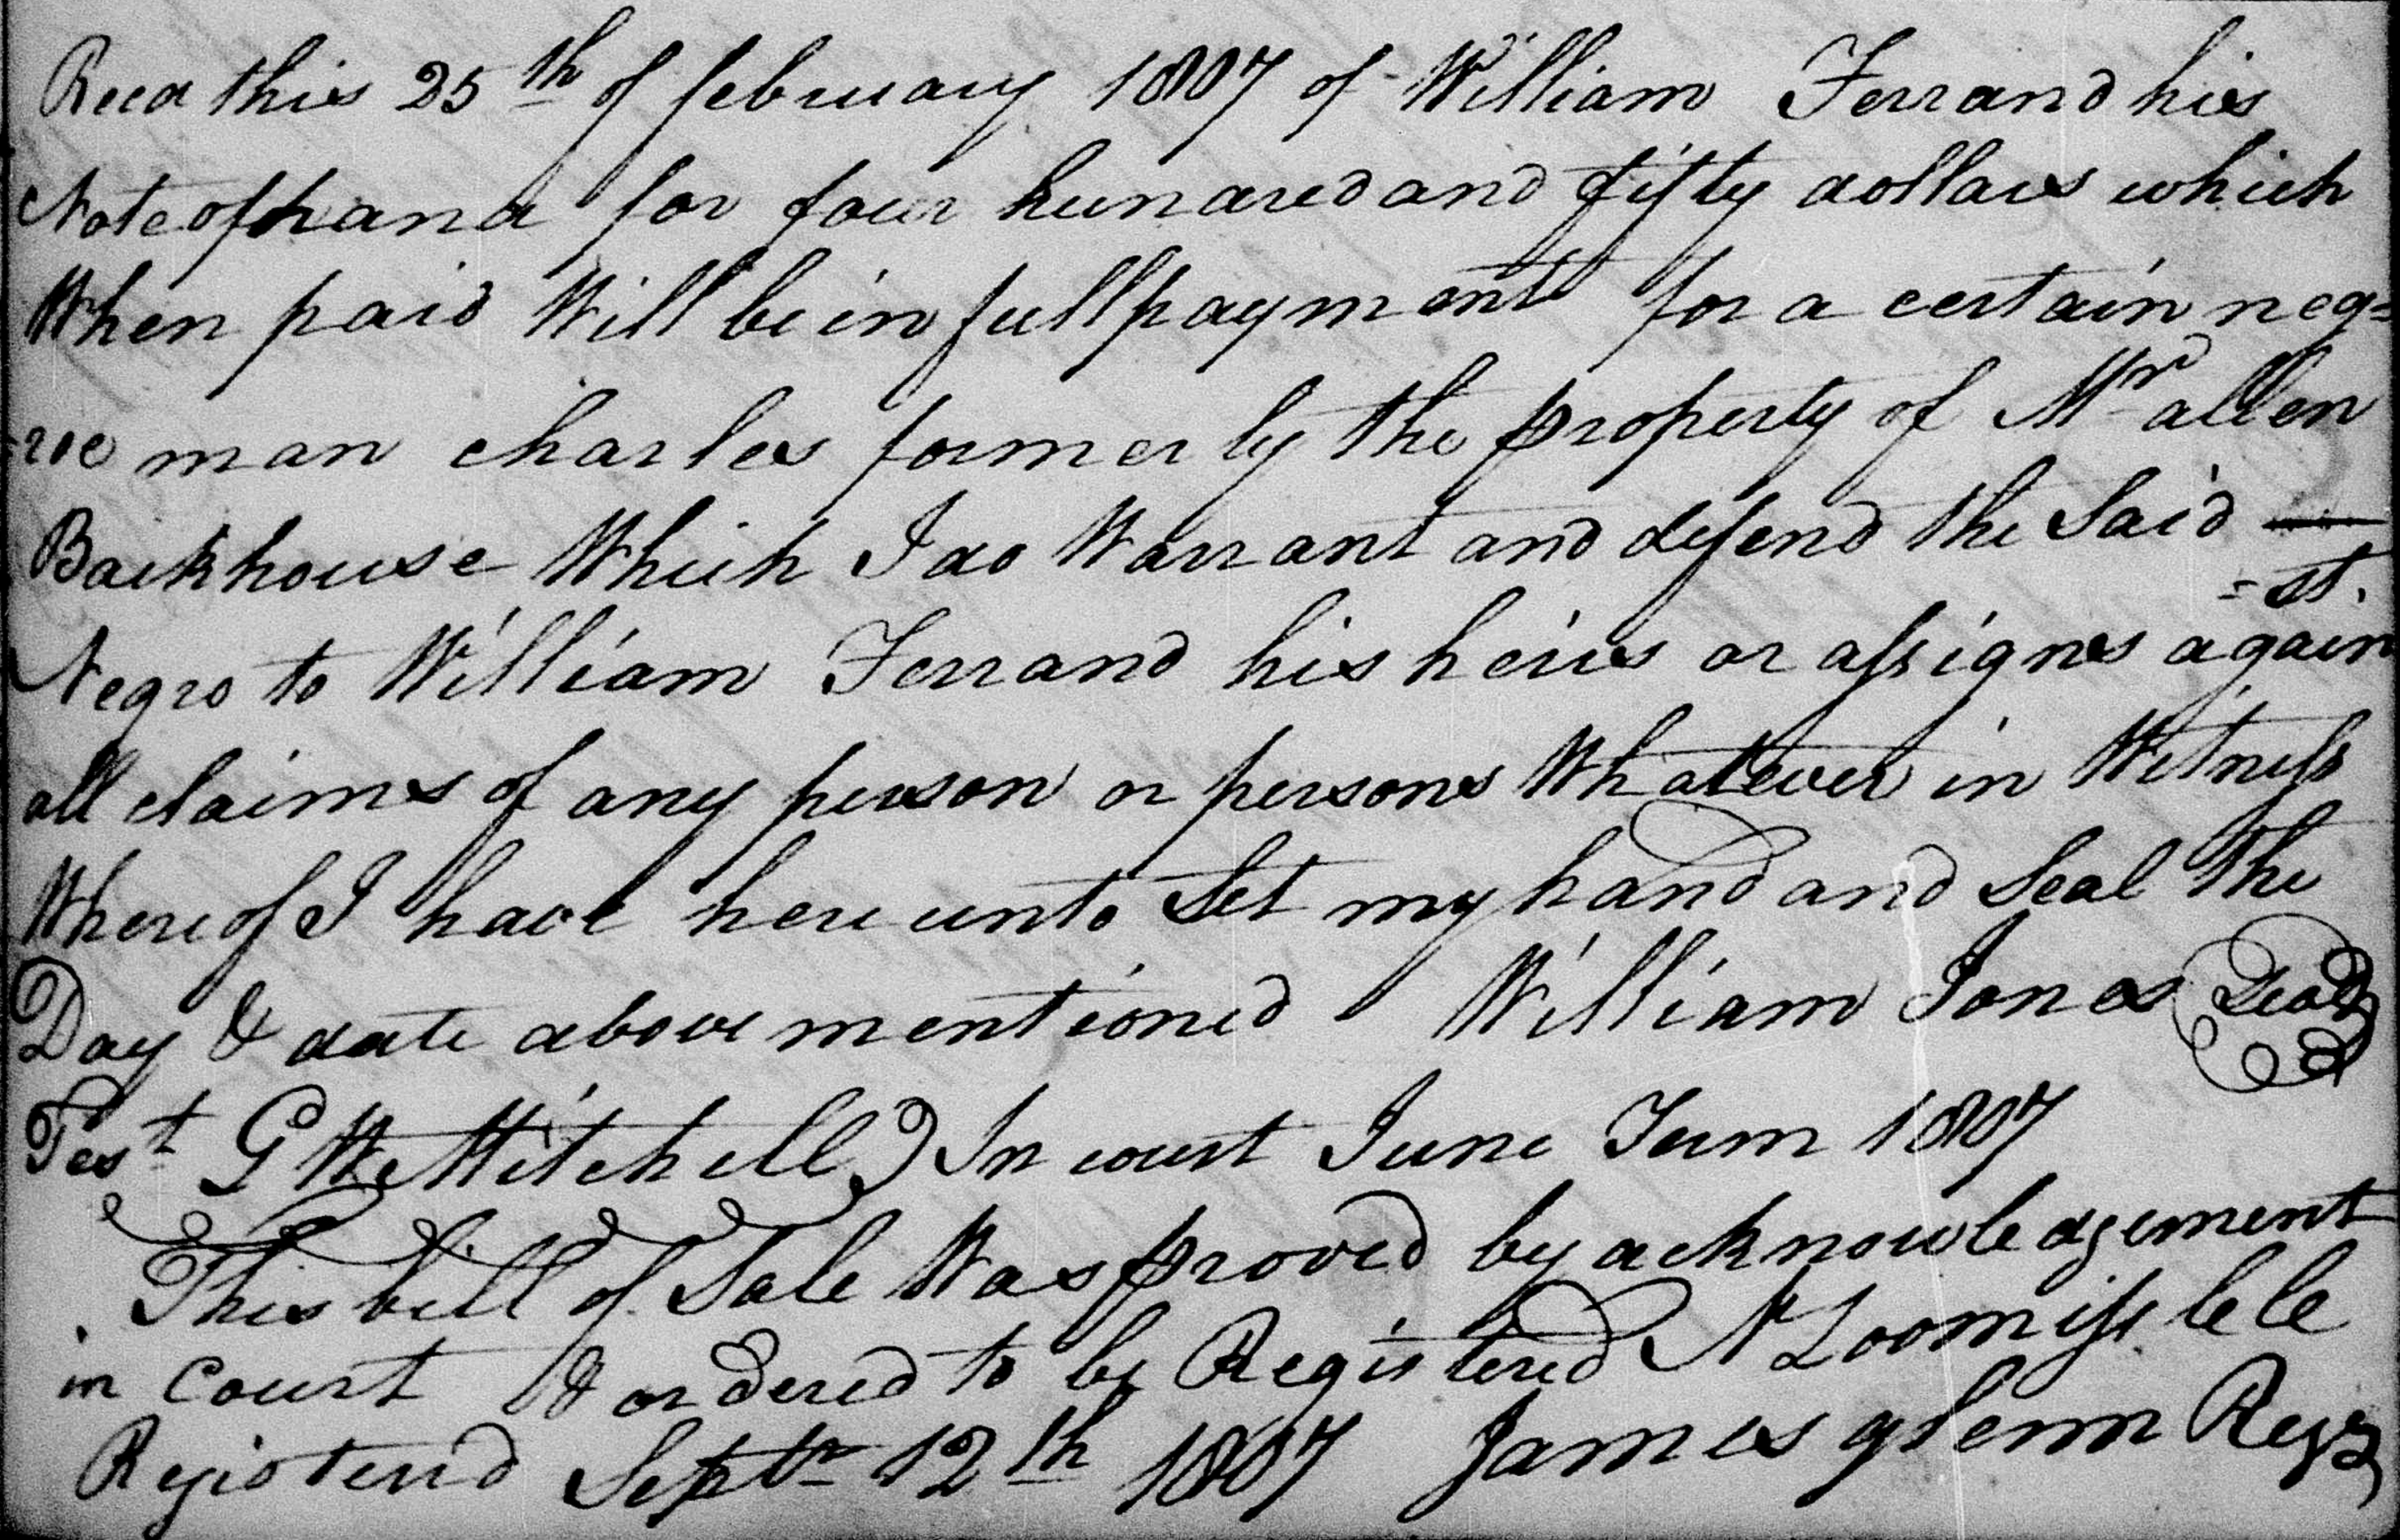 Recd this 25th of february 1807 of William Ferrand his
Note of hand for four hundred and fifty dollars which
When paid Will be in full payment for a certain neg=
=roe man charles formerly the property of Mr allen
Backhouse Which I do Warrant and defend the Said —
=st.
Negro to William Ferrand his heirs or assigns again
all claims of any person or persons Whatever in Witness
Whereof I have here unto Set my hand and Seal the
Day & date above mentioned William Jones Seal
Test G W Mitchell) In court June Term 1807
This bill of Sale Was proved by acknowledgement
in Court & ordered to be Registered N Loomiss
Registered Septr 12th 1807 James glenn Regr